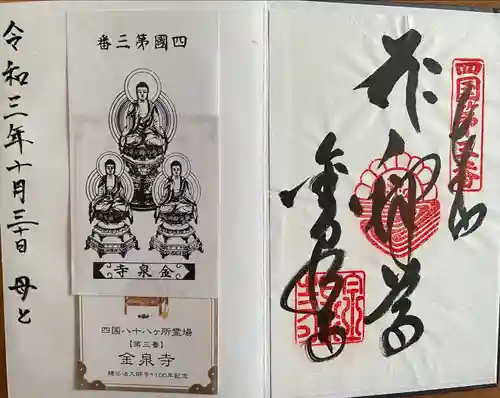 令和三年十月三十日 母と
四國第三番
金泉寺
四国八十八ヶ所霊場
【第三番】
金泉寺
四国第三番
奉拝
釈迦尊
金泉寺